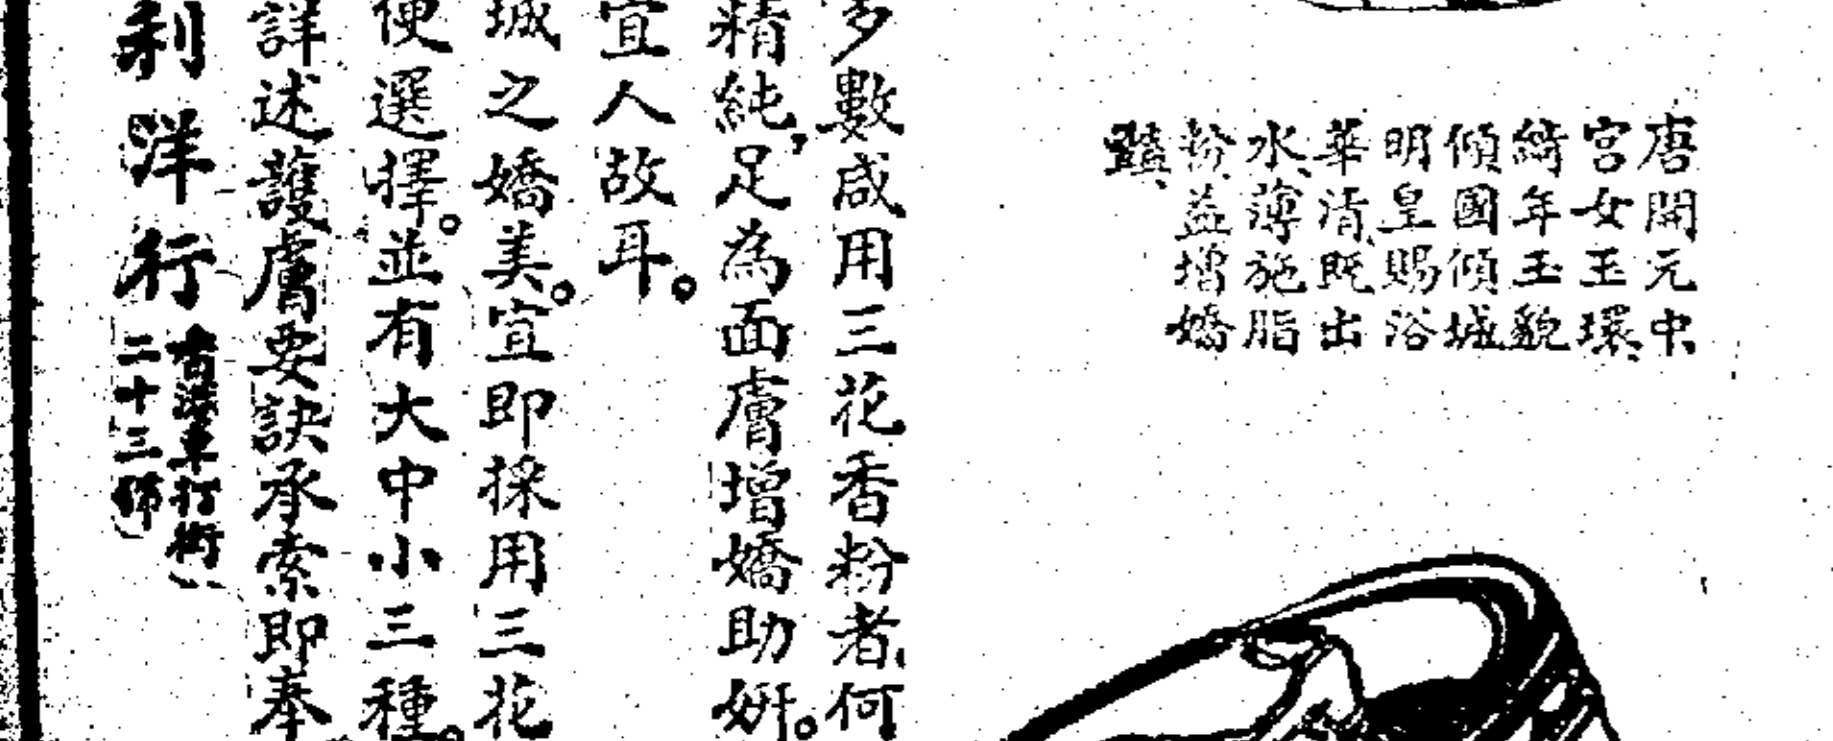 唐開元中
宮女玉環、
綺年玉貌
傾國傾城
明皇賜浴
華清、既出
水、薄施脂
粉、益增嬌
豔、
多數咸用三花香粉者、何
精純，足為面膚增嬌助妍。
宜人故耳。
城之嬌美。宜即採用三花
便選擇。並有大中小三種。
詳述護膚要訣承索即奉
利洋行
二十三號）